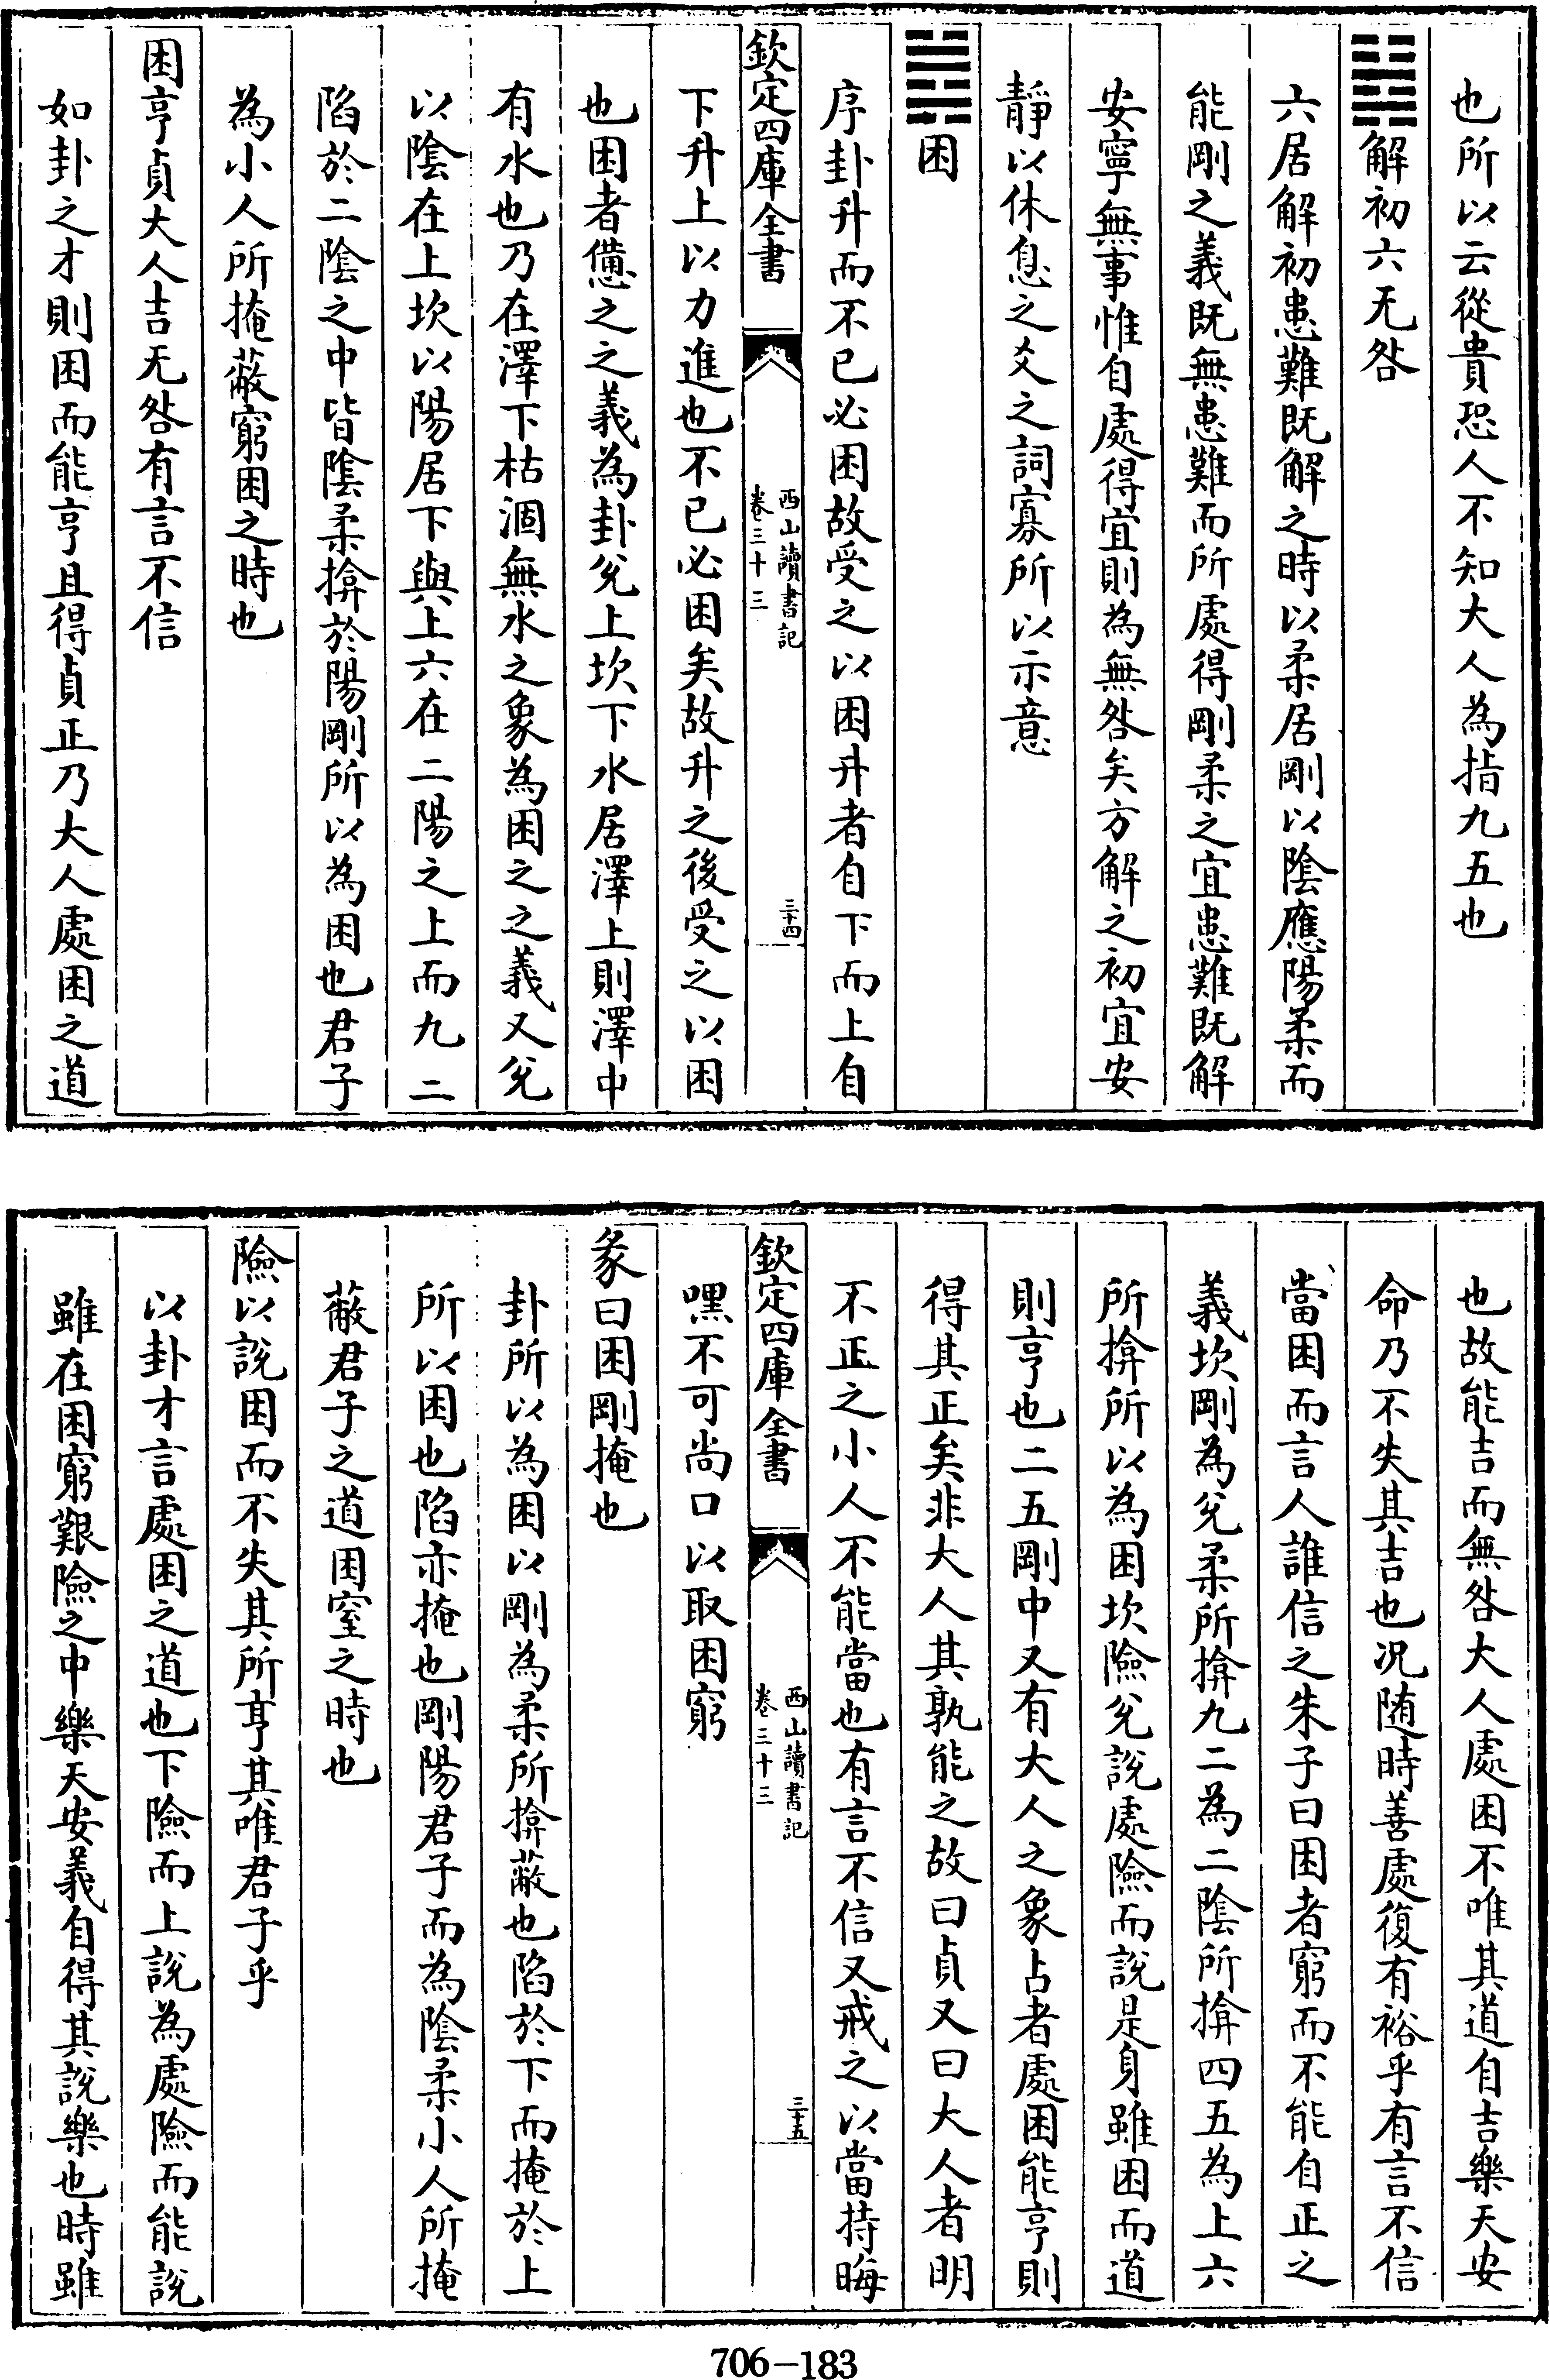 也所以云從貴恐人不知大人為指九五也
䷧解初六无咎
六居解初患難既解之時以柔居剛以陰應陽柔而
能剛之義既無患難而所處得剛柔之宜患難既解
安寧無事惟自處得宜則為無咎矣方解之初宜安
靜以休息之爻之詞寡所以示意
䷮困
序卦升而不已必困故受之以困升者自下而上自
欽定四庫全書
西山讀書記
卷三十三
三十四
下升上以力進也不已必困矣故升之後受之以困
也困者憊之之義為卦兌上坎下水居澤上則澤中
有水也乃在澤下枯涸無水之象為困之之義又兌
以陰在上坎以陽居下與上六在二陽之上而九二
陷於二陰之中皆陰柔揜於陽剛所以為困也君子
為小人所掩蔽窮困之時也
困亨貞大人吉无咎有言不信
如卦之才則困而能亨且得貞正乃大人處困之道
也故能吉而無咎大人處困不唯其道自吉樂天安
命乃不失其吉也况随時善處復有裕乎有言不信
當困而言人誰信之朱子曰困者窮而不能自正之
義坎剛為兌柔所揜九二為二陰所揜四五為上六
所揜所以為困坎險兌說處險而說是身雖困而道
則亨也二五剛中又有大人之象占者處困能亨則
得其正矣非大人其孰能之故曰貞又曰大人者明
不正之小人不能當也有言不信又戒之以當持晦
欽定四庫全書
西山讀書記
卷三十三
三十五
嘿不可尚口以取困窮
彖曰困剛掩也
卦所以為困以剛為柔所揜蔽也陷於下而掩於上
所以困也陷亦掩也剛陽君子而為陰柔小人所掩
蔽君子之道困窒之時也
險以說困而不失其所亨其唯君子乎
以卦才言處困之道也下險而上說為處險而能說
雖在困窮艱險之中樂天安義自得其說樂也時雖
706-183